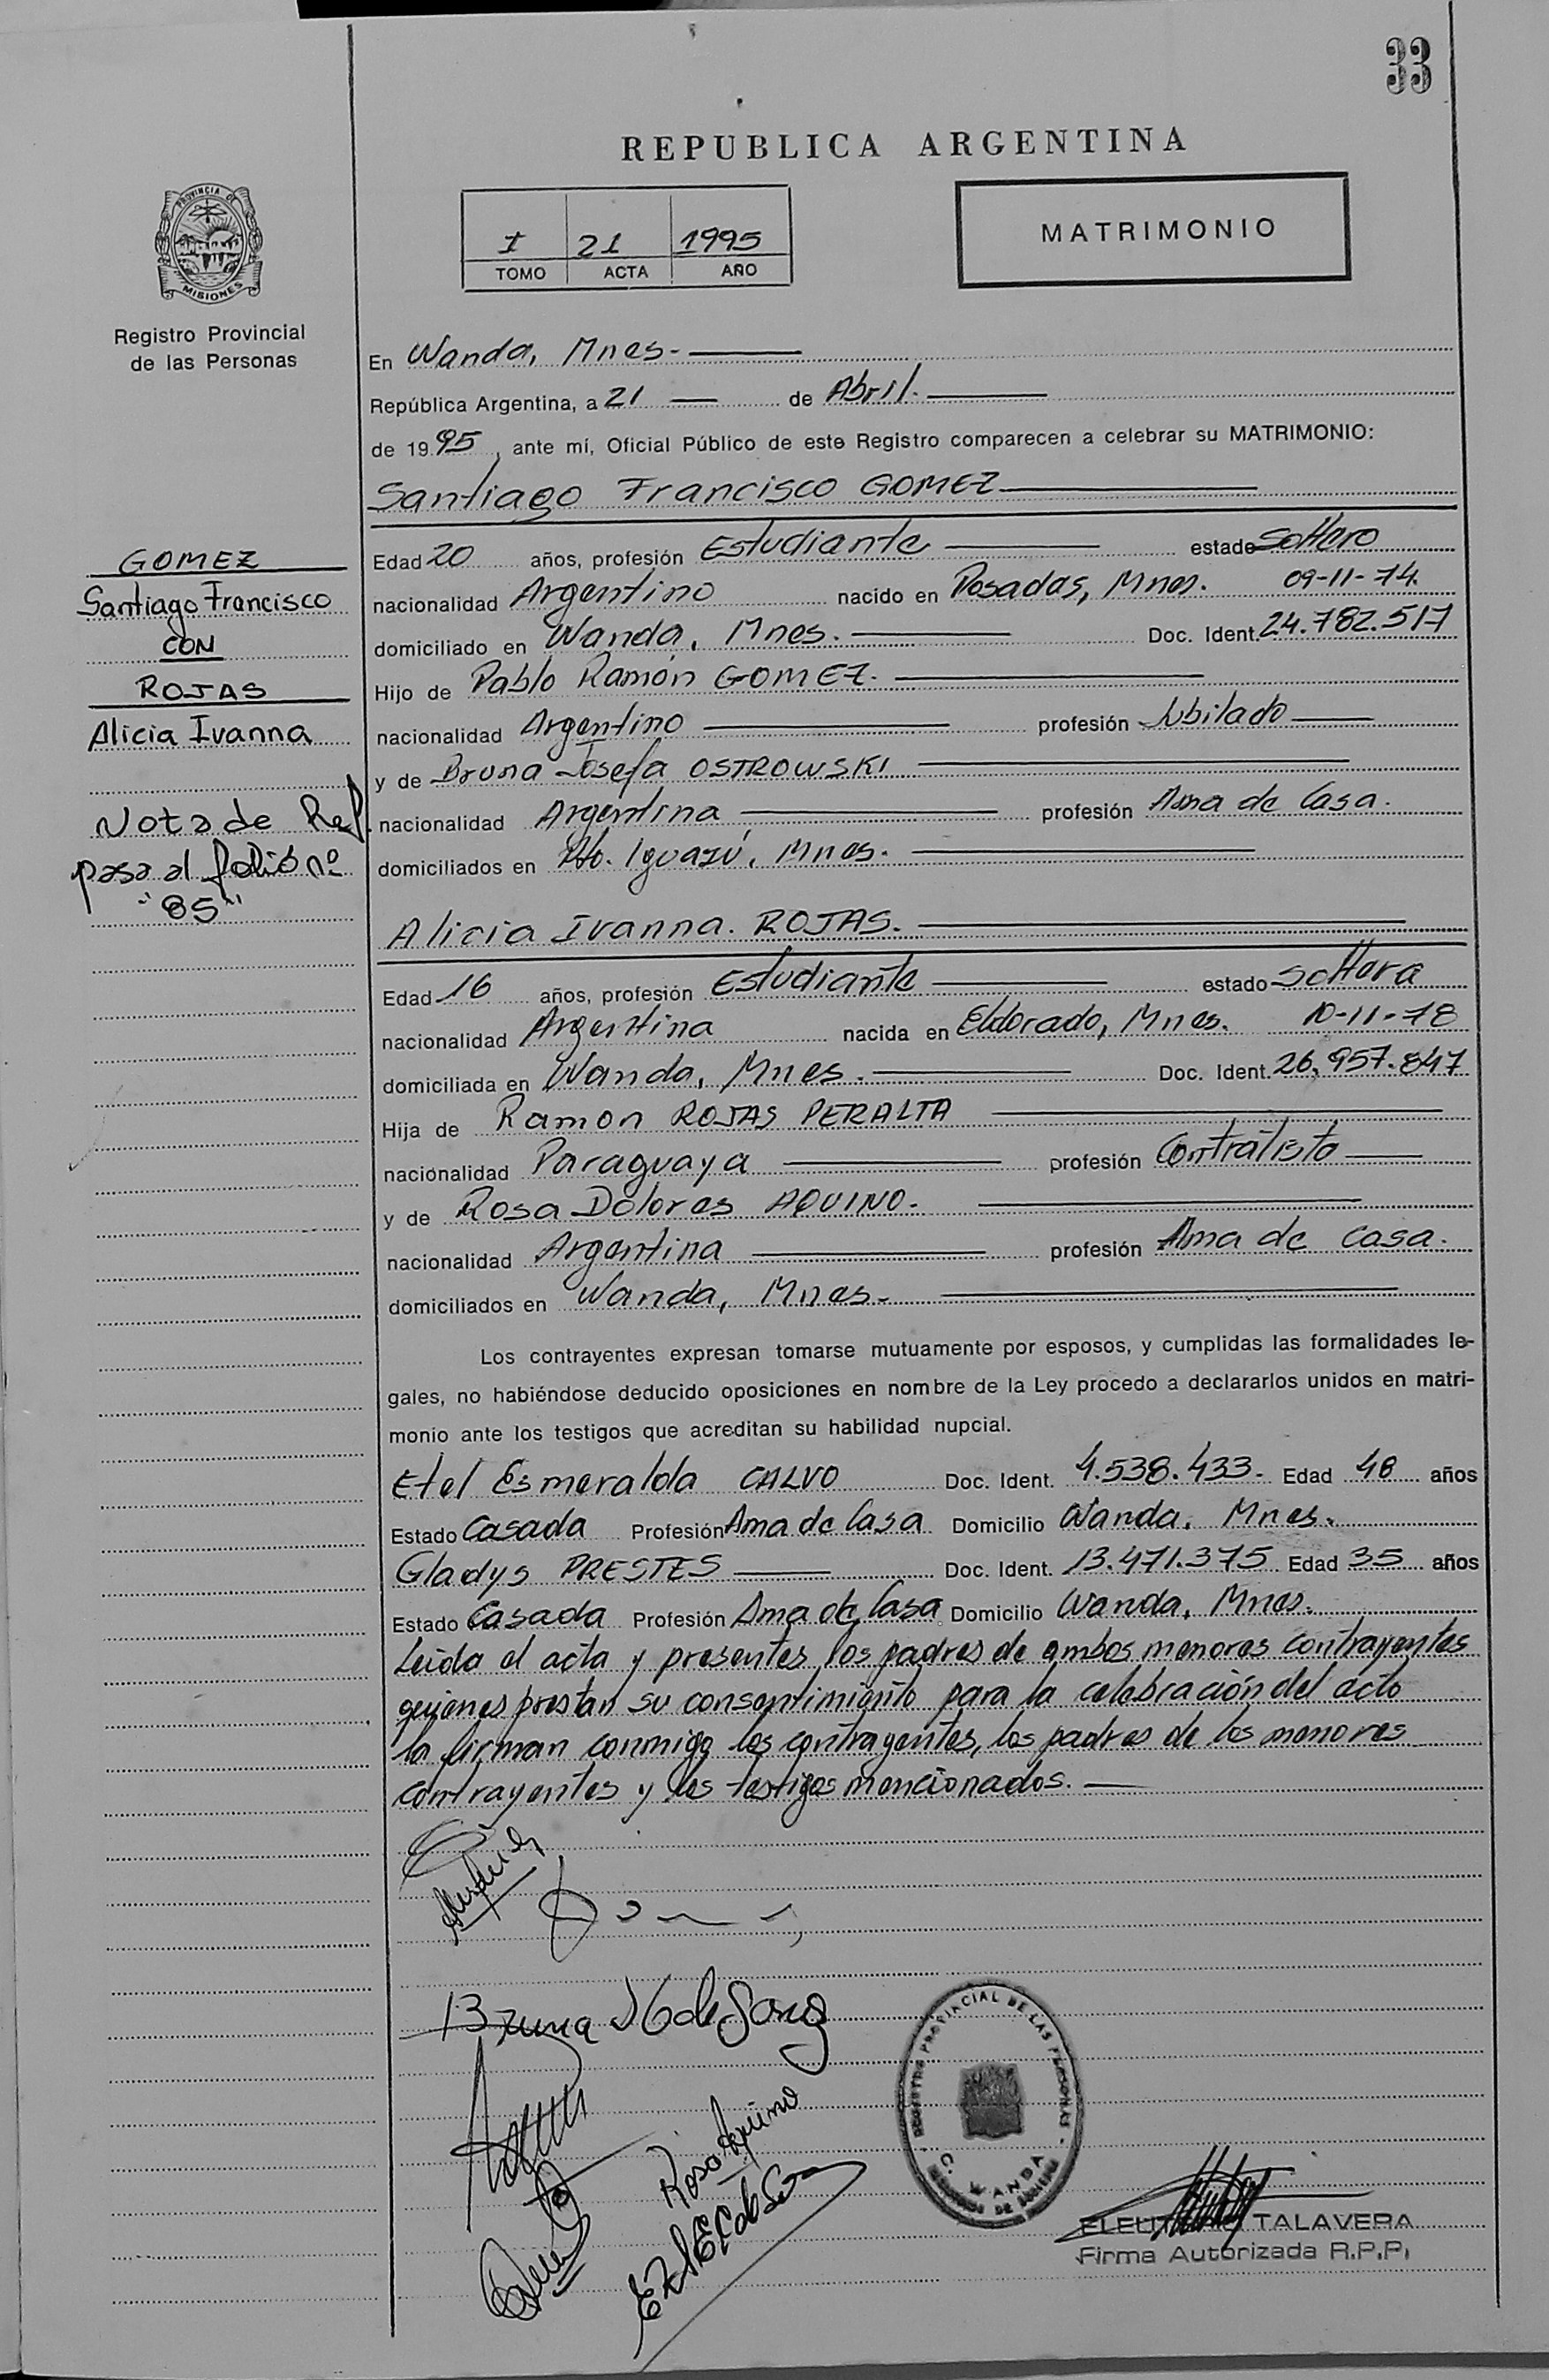 33
REPUBLICA ARGENTINA
PROVINCIA DE
MISIONES
Registro Provincial
de las Personas
I 21 1995
TOMO ACTA AÑO
MATRIMONIO
En Wanda, Mnes.-
República Argentina, a 21 de Abril.
de 1995, ante mí, Oficial Público de este Registro comparecen a celebrar su MATRIMONIO:
Santiago Francisco GOMEZ
Edad 20 años, profesión Estudiante estado Soltero
nacionalidad Argentino nacido en Posadas, Mnes. 09-11-74.
domiciliado en Wanda, Mnes. Doc. Ident. 24.782.517
Hijo de Pablo Ramón GOMEZ.
nacionalidad Argentino profesión Jubilado
y de Bruna Josefa OSTROWSKI
nacionalidad Argentina profesión Ama de Casa.
domiciliados en Pto. Iguazú, Mnes.
GOMEZ
Santiago Francisco
CON
ROJAS
Alicia Ivanna
Nota de Ref.
pasa al folio nº
"85"
Alicia Ivanna. ROJAS.
Edad 16 años, profesión Estudiante estado Soltera
nacionalidad Argentina nacida en Eldorado, Mnes. 10-11-78
domiciliada en Wanda, Mnes. Doc. Ident. 26.957.847
Hija de Ramon ROJAS PERALTA
nacionalidad Paraguaya profesión Contratista
y de Rosa Dolores AQUINO.
nacionalidad Argentina profesión Ama de casa.
domiciliados en Wanda, Mnes.
Los contrayentes expresan tomarse mutuamente por esposos, y cumplidas las formalidades le-
gales, no habiéndose deducido oposiciones en nombre de la Ley procedo a declararlos unidos en matri-
monio ante los testigos que acreditan su habilidad nupcial.
Etel Esmeralda CALVO Doc. Ident. 4.538.433. Edad 48 años
Estado Casada Profesión Ama de Casa Domicilio Wanda, Mnes.
Gladys PRESTES Doc. Ident. 13.471.375 Edad 35 años
Estado Casada Profesión Ama de Casa Domicilio Wanda, Mnes.
Leida el acta y presentes los padres de ambos menores contrayentes
quienes prestan su consentimiento para la celebración del acto
la firman conmigo los contrayentes, los padres de los menores
contrayentes y los testigos mencionados.
Bruna
Rosa Aquino
REGISTRO PROVINCIAL DE LAS PERSONAS
WANDA
TALAVERA
Firma Autorizada R.P.P.